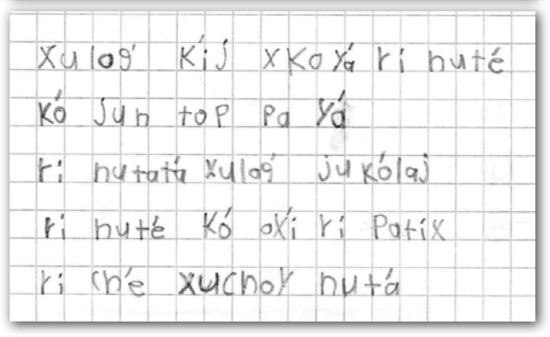 xulog' k'ij xkoya' ri nute'
k'o jun top pa ya'
ri nutata' xulog' juk'olaj
ri nute' k'o oxi' ri patix
ri che' xuchoy nuta'